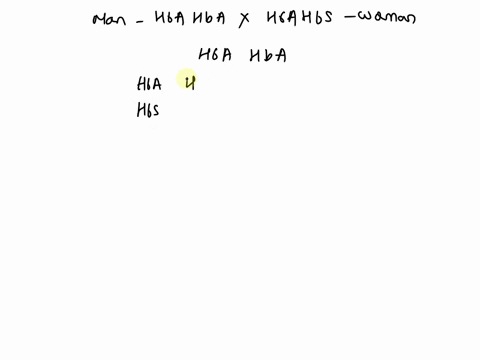 Man - HbA HbA X HbA HbS - woman
HbA HbA
HbA H
HbS